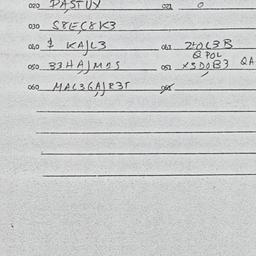 020 PASTUY 021 0
030 S8EC8K3
040 $ KAJL3 041 240C3B
QPOL
050 33HAJMOS 051 XSDOB3 QA
060 MAC36AJR35